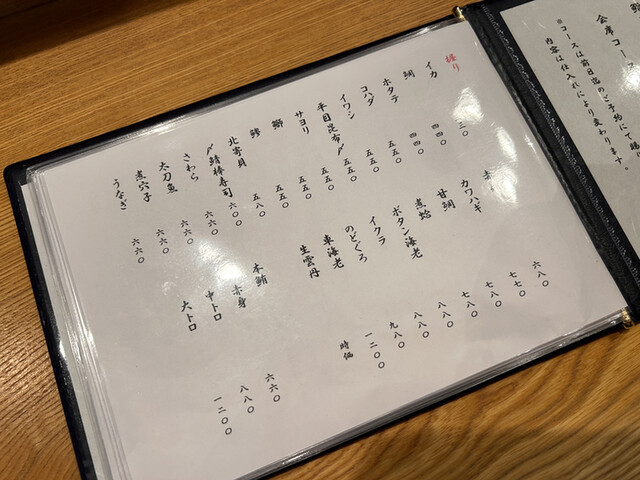 会席コース
※コースは前日迄のご予約にて
内容は仕入れにより変わります。
握り
イカ 三〇
鯛 四四〇
ホタテ 四四〇
コハダ 五五〇
イワシ 五五〇
平目昆布〆 五五〇
サヨリ 五五〇
鰤 五五〇
五五〇
北寄貝 五八〇
〆鯖棒寿司 六〇〇
さわら 六六〇
太刀魚 六六〇
煮穴子 六六〇
うなぎ 六六〇
六八〇
カワハギ 七七〇
甘鯛
煮蛤 七八〇
ボタン海老 八八〇
イクラ 八八〇
のどぐろ 九八〇
車海老 一二〇〇
生雲丹 時価
本鮪
赤身 六六〇
中トロ 八八〇
大トロ 一二〇〇